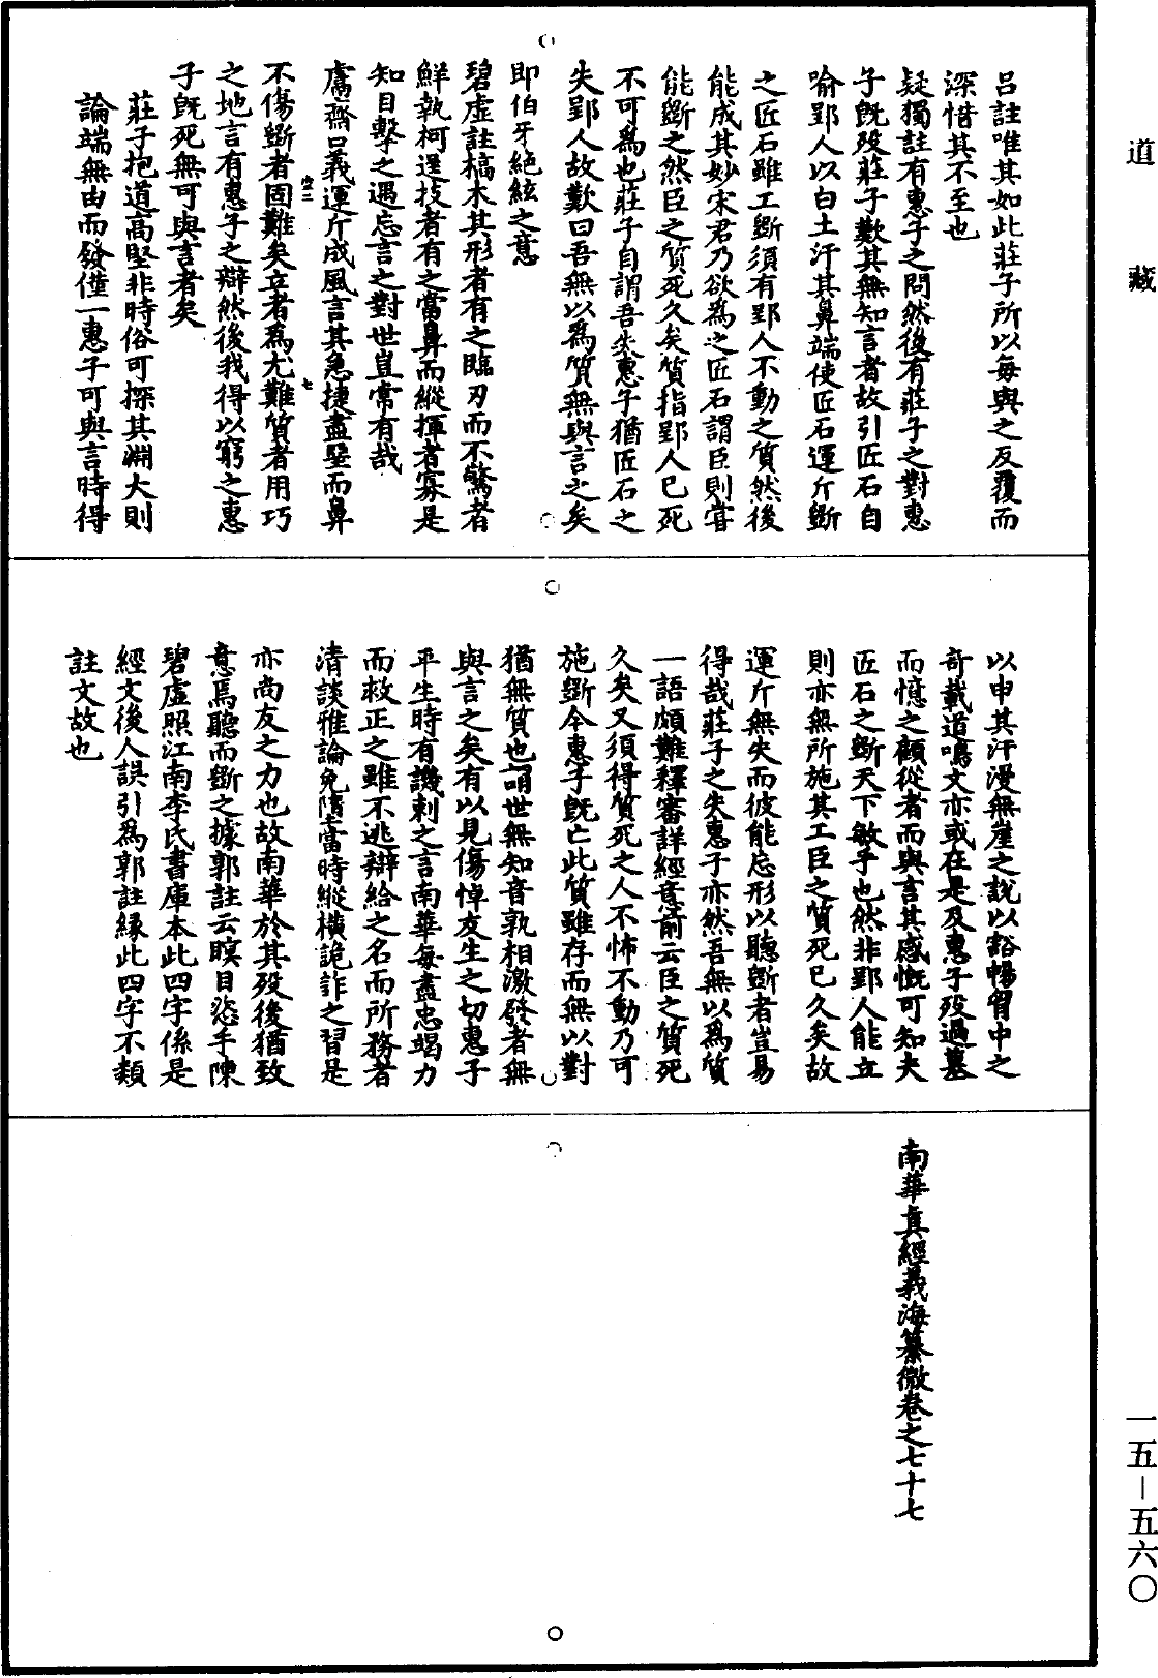 道藏
呂註唯其如此莊子所以每與之反覆而
深惜其不至也
疑獨註有惠子之問然後有莊子之對惠
子旣歿莊子歎其無知言者故引匠石自
喻郢人以白土汙其鼻端使匠石運斤斲
之匠石雖工斲須有郢人不動之質然後
能成其妙宋君乃欲為之匠石謂臣則甞
能斲之然臣之質死久矣質指郢人已死
不可為也莊子自謂吾失惠子猶匠石之
失郢人故歎曰吾無以為質無與言之矣
即伯牙絕絃之意
碧虛註槁木其形者有之臨刃而不驚者
鮮執柯逞技者有之當鼻而縱揮者寡是
知目擊之遇忘言之對世豈常有哉
鬳齋口義運斤成風言其急捷盡堊而鼻
不傷斲者固難矣立者為尤難質者用巧
之地言有惠子之辯然後我得以窮之惠
子旣死無可與言者矣
莊子抱道高堅非時俗可探其淵大則
論端無由而發僅一惠子可與言時得
以申其汗漫無崖之說以豁暢胷中之
奇載道鳴文亦或在是及惠子歿過墓
而憶之顧從者而與言其感慨可知夫
匠石之斲天下敏手也然非郢人能立
則亦無所施其工臣之質死已久矣故
運斤無失而彼能忘形以聽斲者豈易
得哉莊子之失惠子亦然吾無以為質
一語頗難釋審詳經意前云臣之質死
久矣又須得質死之人不怖不動乃可
施斲今惠子旣亡此質雖存而無以對
猶無質也謂世無知音孰相激發者無
與言之矣有以見傷悼友生之切惠子
平生時有譏刺之言南華每盡忠竭力
而救正之雖不逃辯給之名而所務者
清談雅論免墮當時縱橫詭詐之習是
亦尚友之力也故南華於其歿後猶致
意焉聽而斲之據郭註云瞑目恣手陳
碧虛照江南李氏書庫本此四字係是
經文後人誤引為郭註緣此四字不類
註文故也
南華真經義海纂微卷之七十七
一五—五六〇